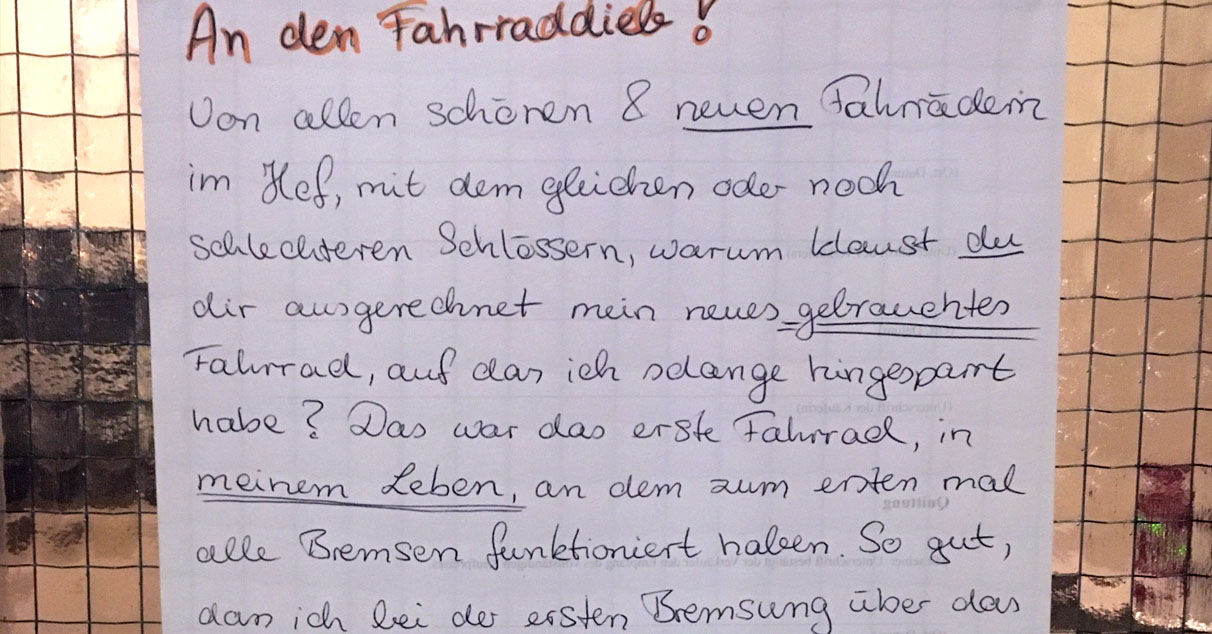 An den Fahrraddieb!
Von allen schönen & neuen Fahrrädern
im Hof, mit dem gleichen oder noch
schlechteren Schlössern, warum klaust du
dir ausgerechnet mein neues gebrauchtes
Fahrrad, auf das ich solange hingesparrt
habe? Das war das erste Fahrrad, in
meinem Leben, an dem zum ersten mal
alle Bremsen funktioniert haben. So gut,
dass ich bei der ersten Bremsung über das
Quittung